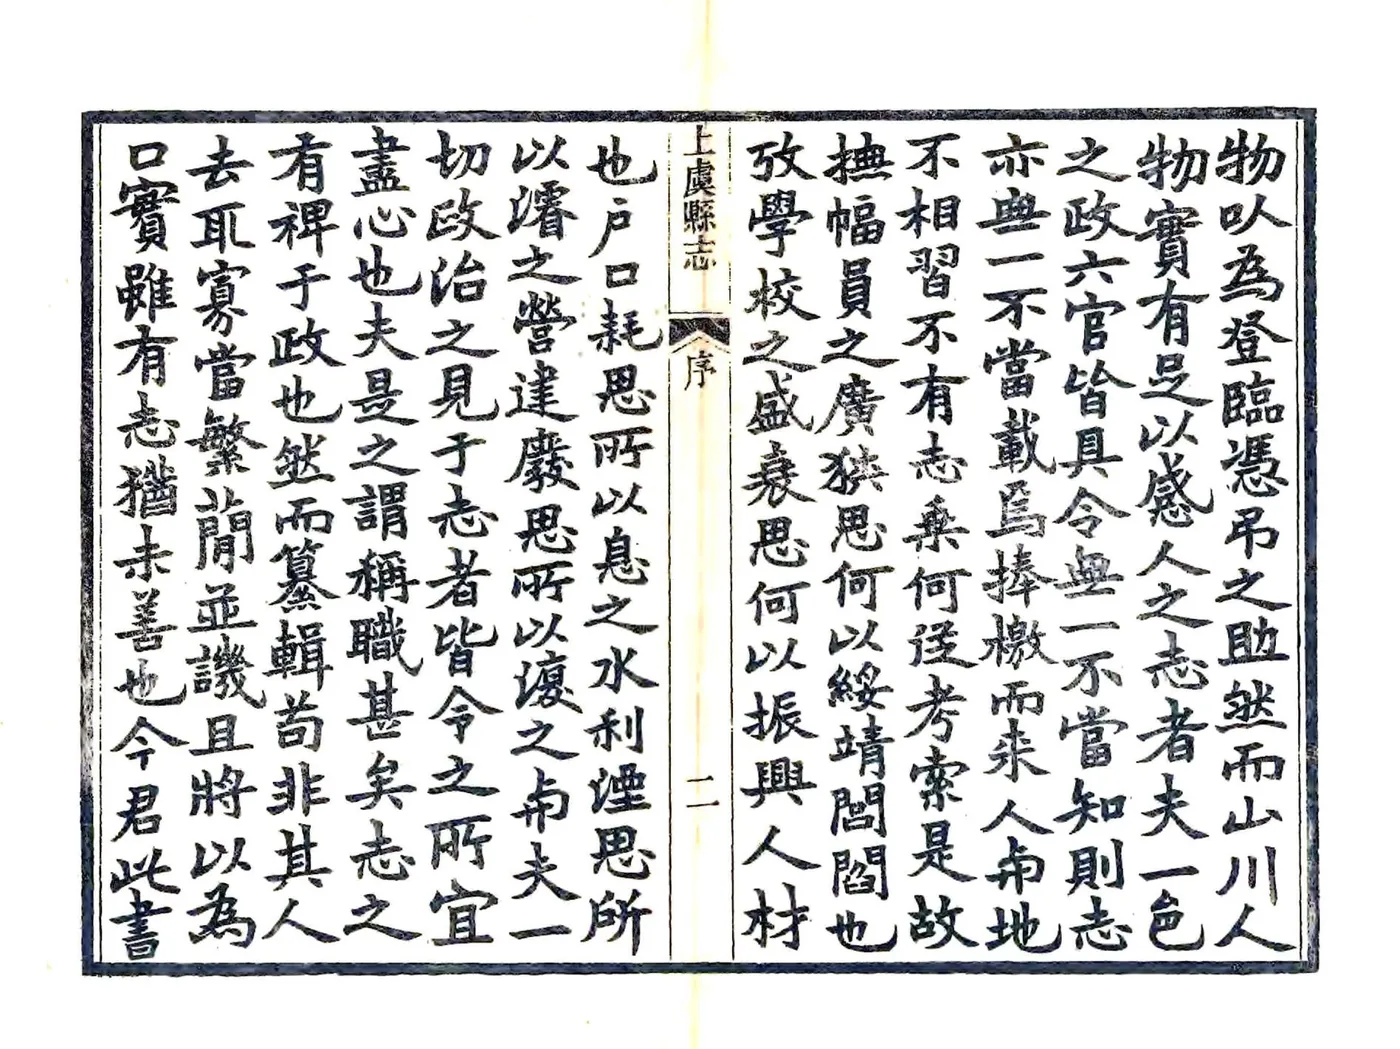 物㕥為登臨憑吊之助然而山川人
物實有足以感人之志者夫一邑
之政六官皆具令無一不當知則志
亦無一不當載焉捧檄而来人與地
不相習不有志乗何従考索是故
撫幅員之廣狹思何以綏靖閭閻也
攷學校之盛衰思何以振興人材
上虞縣志
序
二
也户口耗思所以息之水利湮思所
以濬之營建廢思所以復之與夫一
切政治之見于志者皆令之所宜
盡心也夫是之謂稱職甚矣志之
有裨于政也然而纂輯苟非其人
去取寡當繁蕑並譏且將以為
口實雖有志猶未善也今君此書